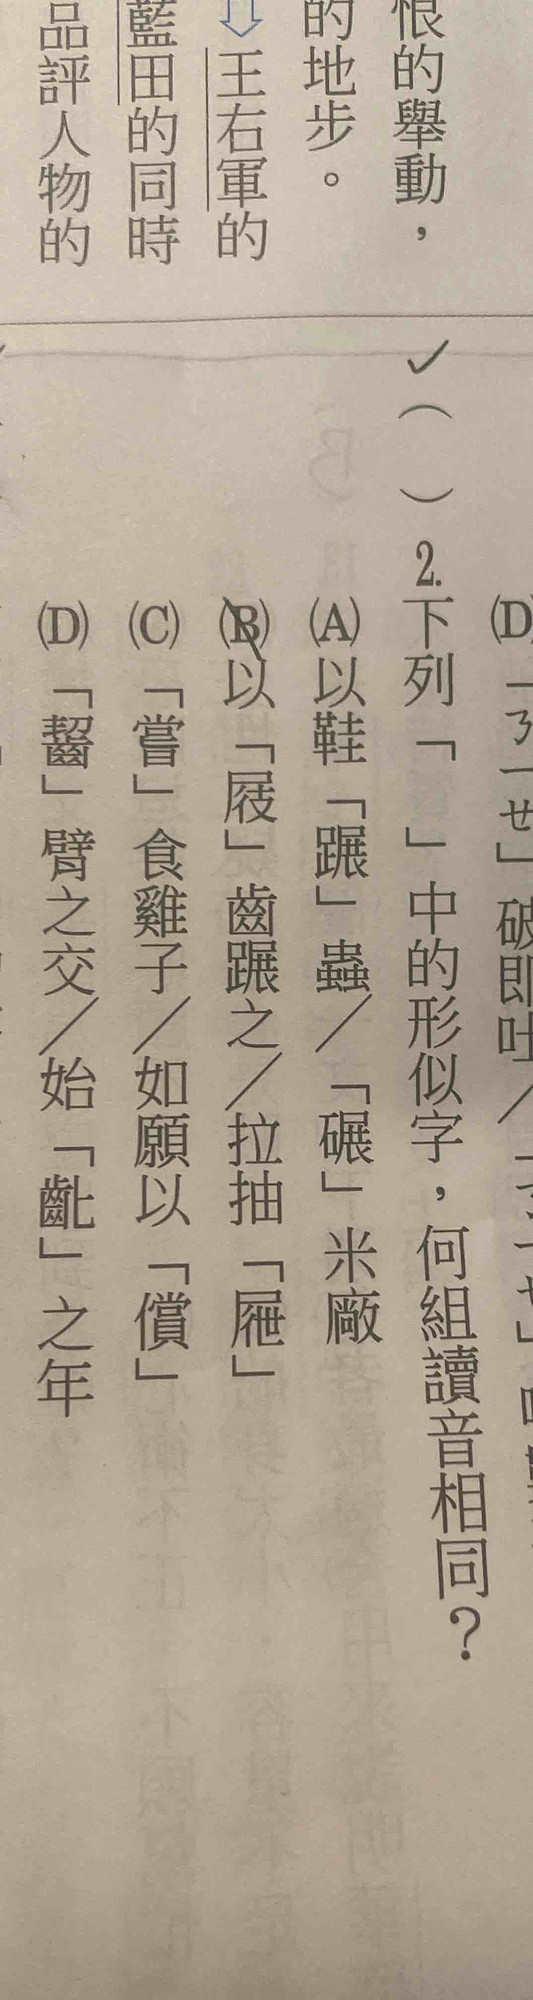 恨的舉動，
的地步。
⇨王右軍的
藍田的同時
品評人物的
(D)「ㄋㄧㄝ」破即吐／
✓（　）2.下列「　」中的形似字，何組讀音相同？
(A)以鞋「蹍」蟲／「碾」米廠
(B)以「屐」齒蹍之／拉抽「屜」
(C)「嘗」食雞子／如願以「償」
(D)「齧」臂之交／始「齔」之年